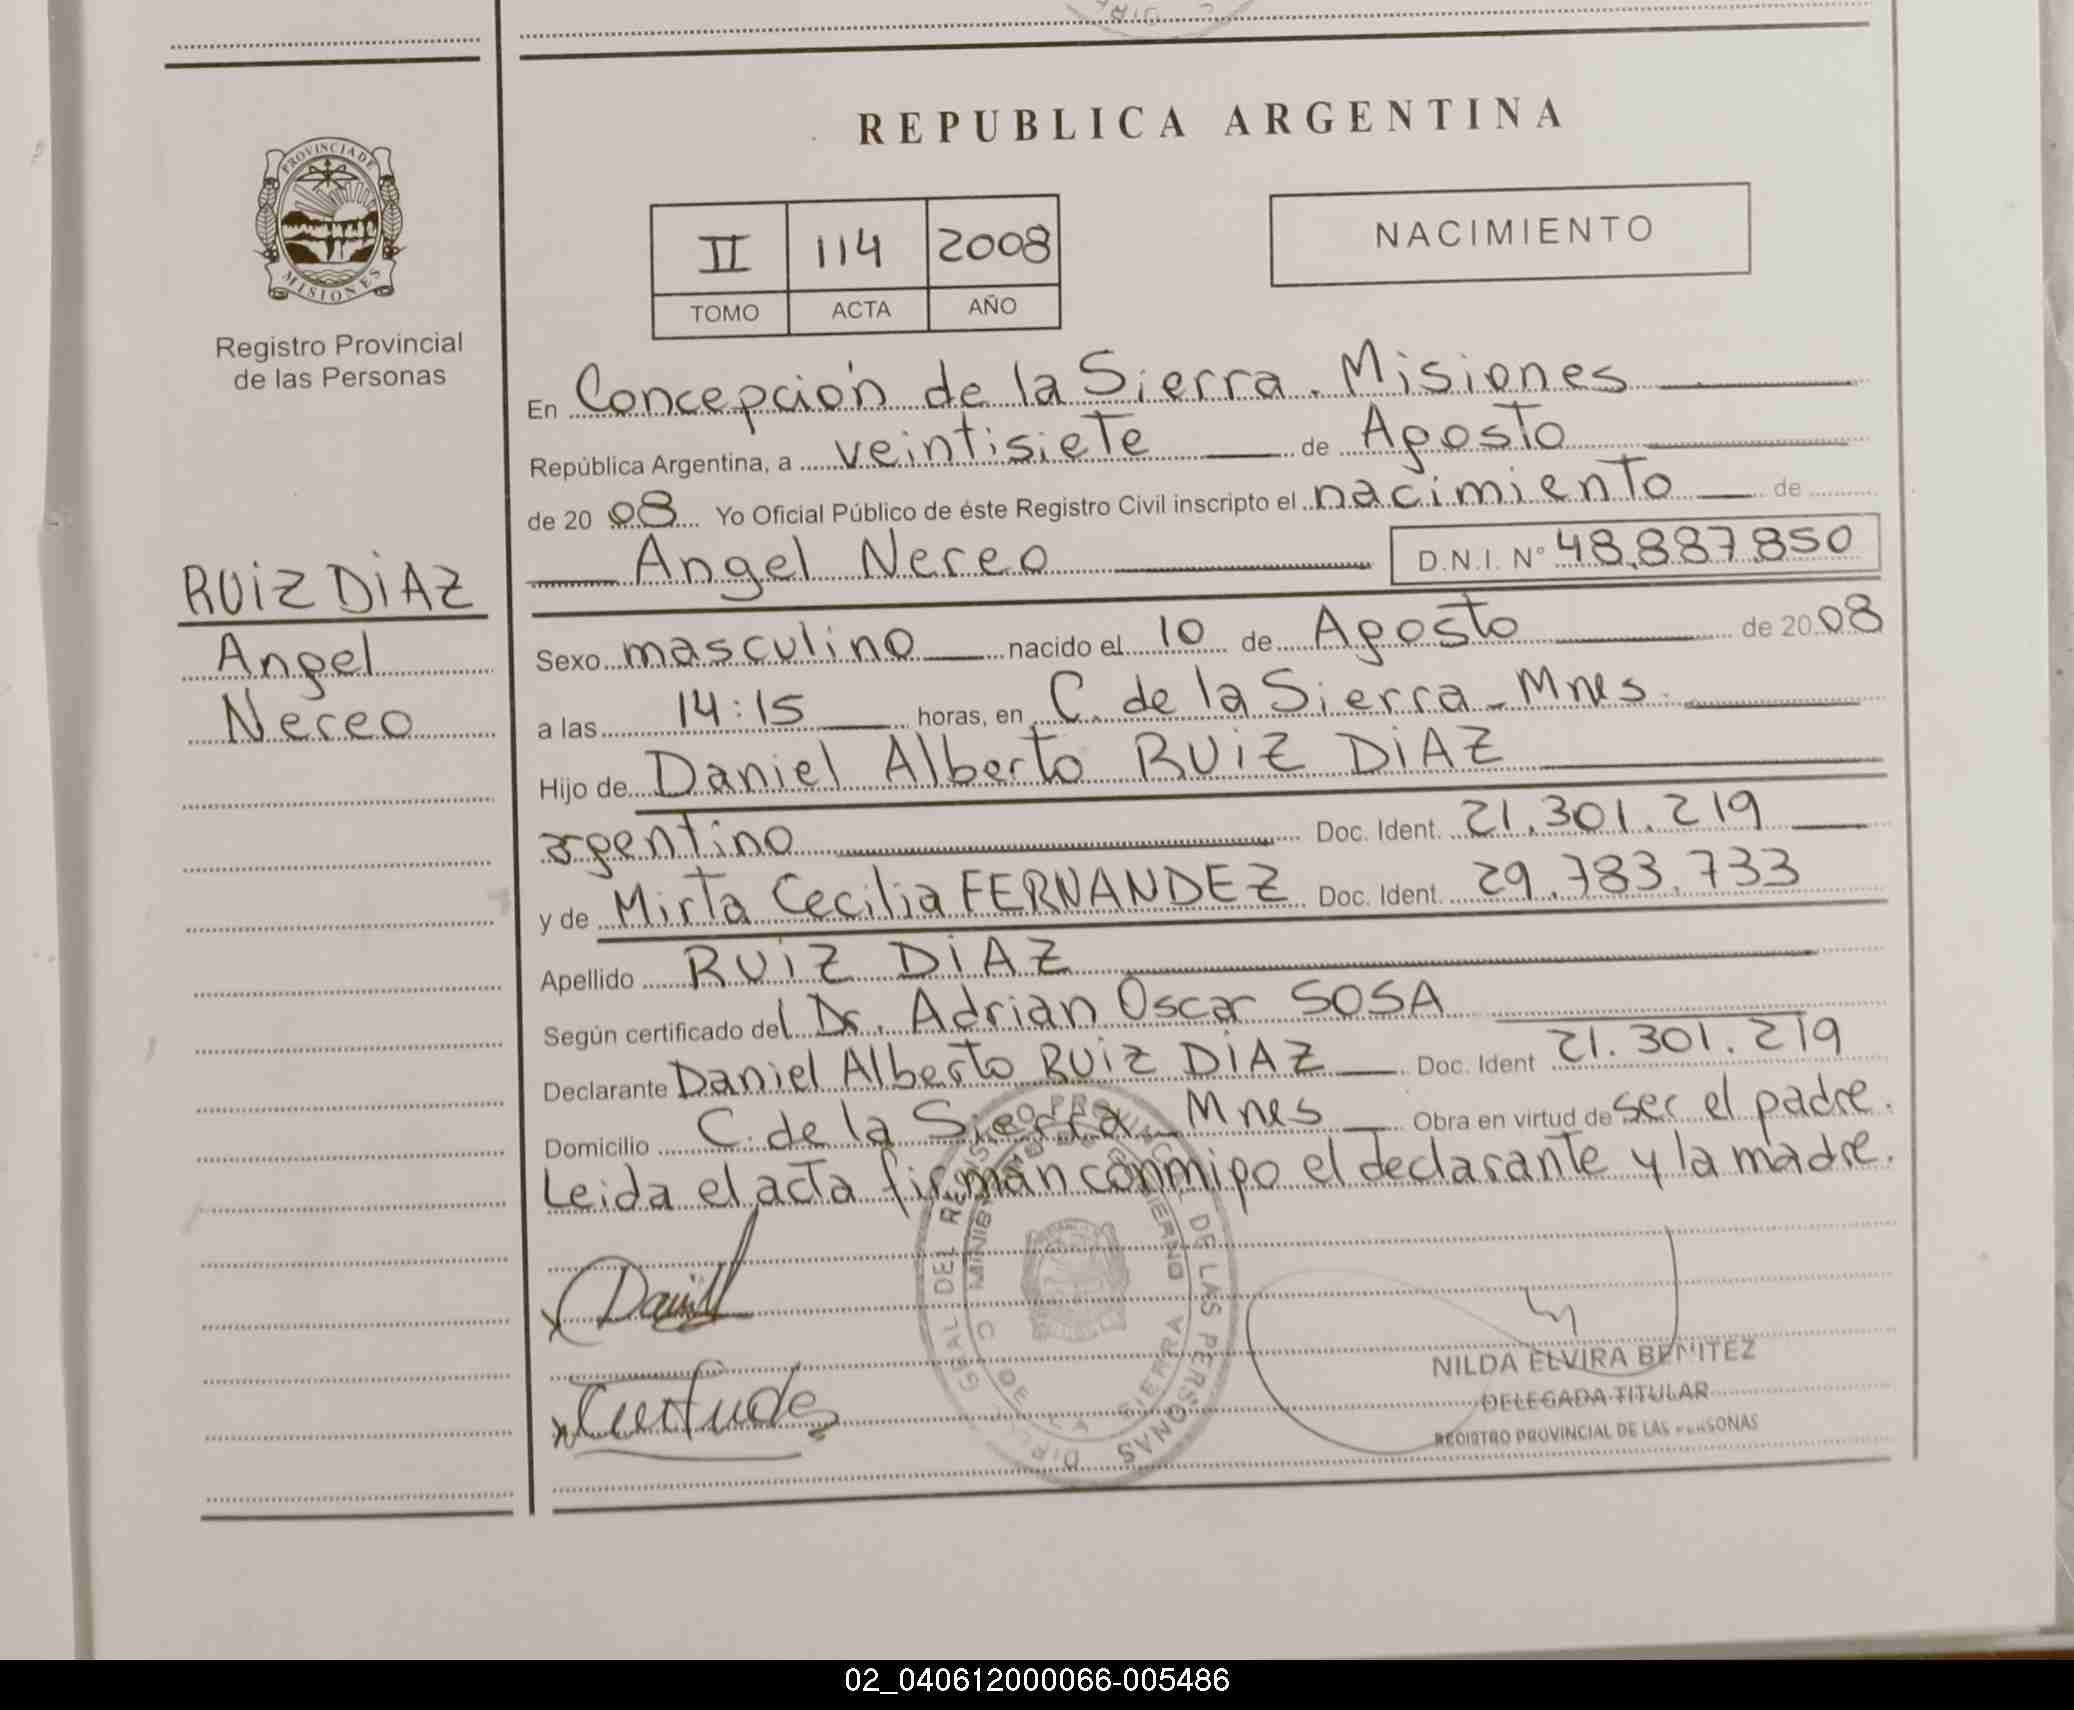 REPUBLICA ARGENTINA
PROVINCIA DE
MISIONES
Registro Provincial
de las Personas
II 114 2008
TOMO ACTA AÑO
NACIMIENTO
RUiZ DiAZ
Angel
Nereo
En Concepción de la Sierra. Misiones
República Argentina, a veintisiete de Agosto
de 20 08 Yo Oficial Público de éste Registro Civil inscripto el nacimiento de
Angel Nereo D.N.I. N° 48.887.850
Sexo masculino nacido el 10 de Agosto de 20 08
a las 14:15 horas, en C. de la Sierra - Mnes.
Hijo de Daniel Alberto RUiZ DiAZ
argentino Doc. Ident. 21.301.219
y de Mirta Cecilia FERNANDEZ Doc. Ident. 29.783.733
Apellido RUiZ DiAZ
Según certificado del Dr. Adrian Oscar SOSA
Declarante Daniel Alberto RUiZ DiAZ Doc. Ident 21.301.219
Domicilio C. de la Sierra - Mnes Obra en virtud de ser el padre.
Leida el acta firman conmigo el declarante y la madre.
NILDA ELVIRA BENITEZ
DELEGADA TITULAR
REGISTRO PROVINCIAL DE LAS PERSONAS
02_040612000066-005486